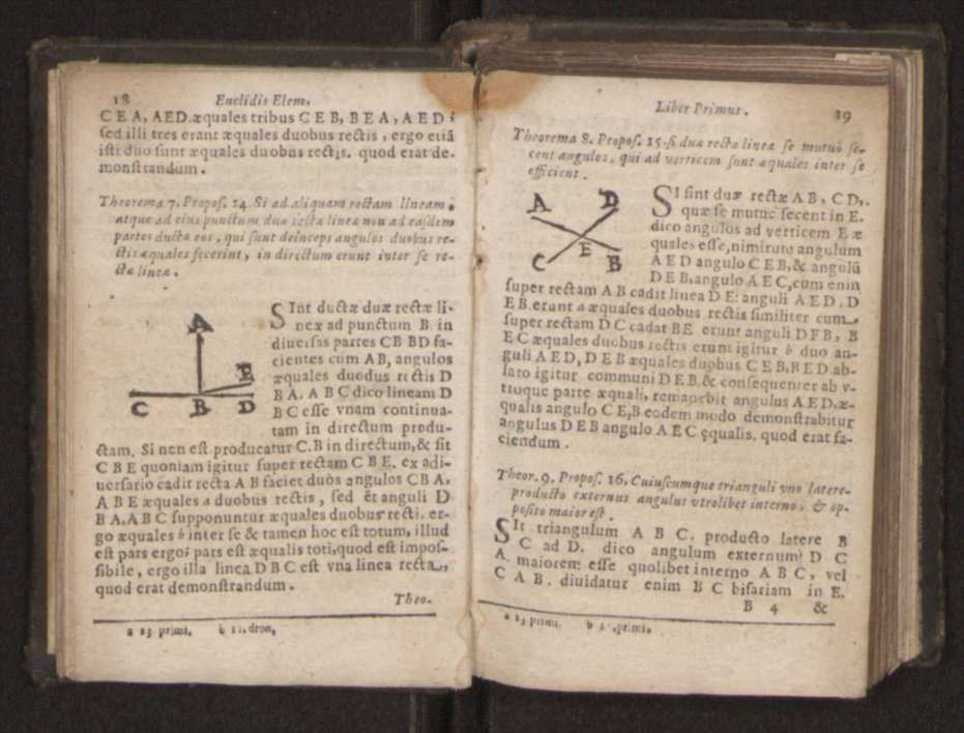 18 Euclidis Elem.
C E A, A E D. æquales tribus C E B, B E A, A E D:
sed illi tres erant æquales duobus rectis, ergo etiã
isti duo sunt æquales duobus rectis. quod erat de-
monstrandum.
Theorema 7. Propos. 14. Si ad aliquam rectam lineam,
atque ad eius punctum duæ rectæ lineæ non ad easdem
partes ductæ eos, qui sunt deinceps angulos duobus re-
ctis æquales fecerint, in directum erunt inter se re-
ctæ lineæ.
A
E
C B D
SInt ductæ duæ rectæ li-
neæ ad punctum B in
diuersas partes CB BD fa-
cientes cum AB, angulos
æquales duodus rectis D
B A. A B C dico lineam D
B C esse vnam continua-
tam in directum produ-
ctam. Si non est producatur C.B in directum, & sit
C B E quoniam igitur super rectam C B E. ex adi-
uersario cadit recta A B faciet duos angulos CBA,
A B E æquales a duobus rectis, sed et anguli D
B A. A B C supponuntur æquales duobus recti. er-
go æquales b inter se & tamen hoc est totum, illud
est pars ergo: pars est æqualis toti, quod est impos-
sibile, ergo illa linea D B C est vna linea recta,
quod erat demonstrandum.
Theo-
a 13 primi. b 11.
Liber Primus. 19
Theorema 8. Propos. 15. si duæ rectæ lineæ se mutuò se-
cent angulos, qui ad verticem sunt æquales inter se
efficient.
A D
E
C B
SI sint duæ rectæ A B, C D,
quæ se mutuc secent in E.
dico angulos ad verticem E æ
quales esse, nimirum angulum
A E D angulo C E B, & angulũ
D E B, angulo A E C, cum enin
super rectam A B cadit linea D E: anguli A E D. D
E B. erunt a æquales duobus rectis similiter cum
super rectam D C cadat BE erunt anguli D F B, B
E C æquales duobus rectis erunt igitur b duo an-
guli A E D, D E B æquales duobus C E B, B E D. ab-
lato igitur communi D E B. & consequenter ab v-
troque parte æquali, remanebit angulus A E D. æ-
qualis angulo C E, B eodem modo demonstrabitur
angulus D E B angulo A E C ęqualis. quod erat fa-
ciendum.
Theor. 9. Propos. 16. Cuiuscumque trianguli vno latere-
producto externus angulus vtrolibet interno, & op-
posito maior est.
SIt triangulum A B C. producto latere B
C ad D. dico angulum externum: D C
A maiorem esse quolibet interno A B C, vel
C A B. diuidatur enim B C bifariam in E.
B 4 &
a 13 primi. b 1. primi.